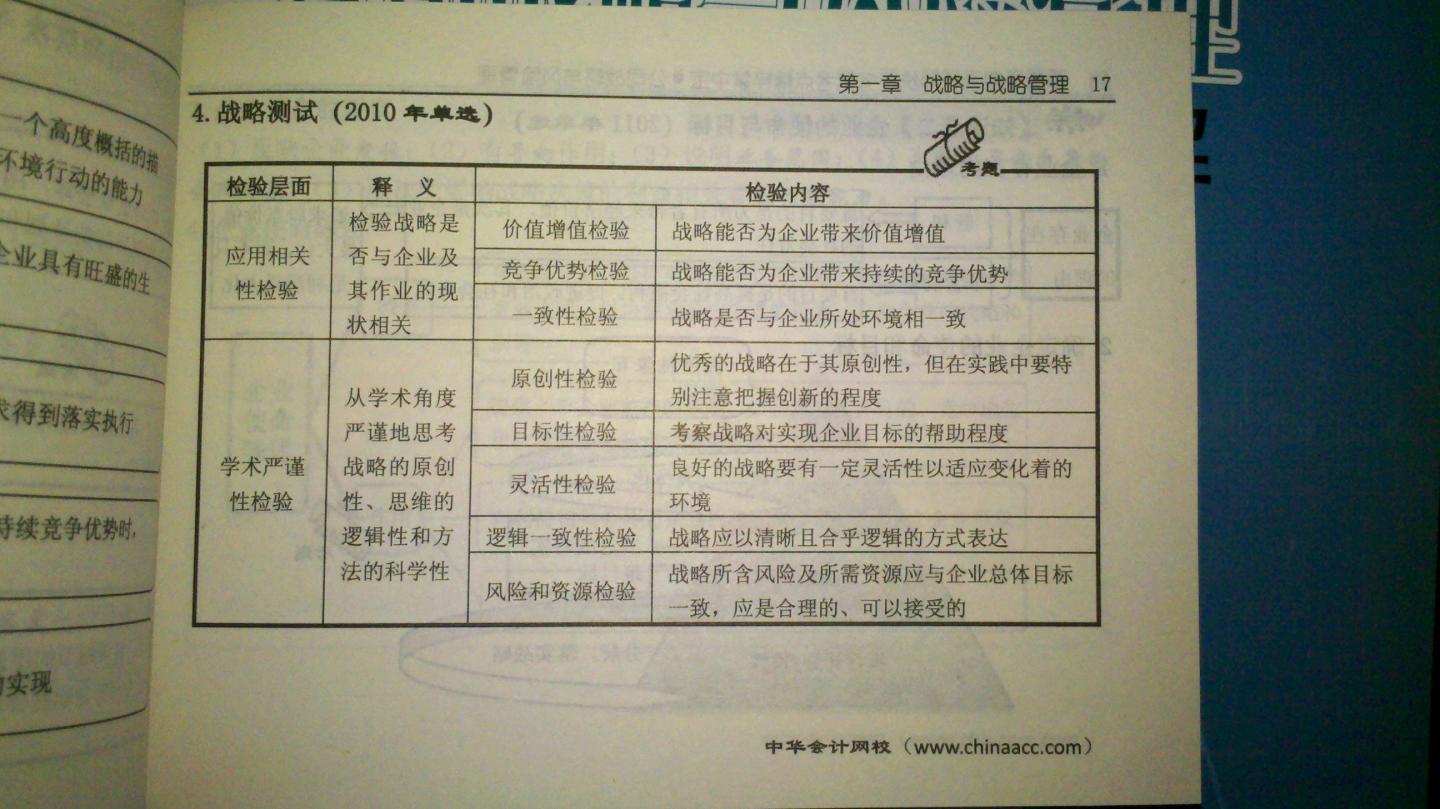 一个高度概括的描
环境行动的能力
企业具有旺盛的生
求得到落实执行
持续竞争优势时,
的实现
第一章 战略与战略管理 17
4.战略测试(2010年单选)
考题
检验层面 释 义 检验内容
应用相关
性检验
检验战略是
否与企业及
其作业的现
状相关
价值增值检验 战略能否为企业带来价值增值
竞争优势检验 战略能否为企业带来持续的竞争优势
一致性检验 战略是否与企业所处环境相一致
学术严谨
性检验
从学术角度
严谨地思考
战略的原创
性、思维的
逻辑性和方
法的科学性
原创性检验
优秀的战略在于其原创性,但在实践中要特
别注意把握创新的程度
目标性检验 考察战略对实现企业目标的帮助程度
灵活性检验
良好的战略要有一定灵活性以适应变化着的
环境
逻辑一致性检验 战略应以清晰且合乎逻辑的方式表达
风险和资源检验
战略所含风险及所需资源应与企业总体目标
一致,应是合理的、可以接受的
中华会计网校(www.chinaacc.com)